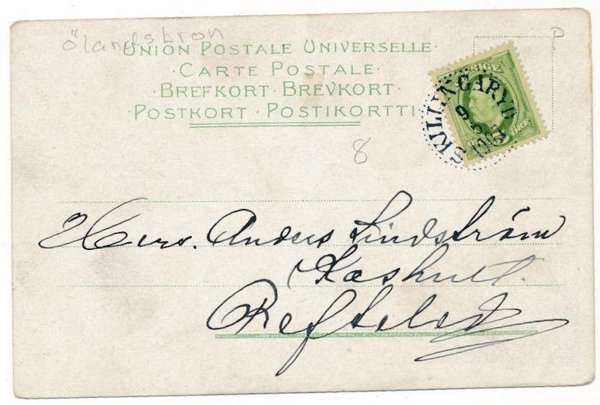 Ölandsbron
D
UNION POSTALE UNIVERSELLE
· CARTE POSTALE ·
· BREFKORT · BREVKORT ·
POSTKORT · POSTIKORTTI
8
SKILLINGARYD
Herr. Anders Lindström
Reftele